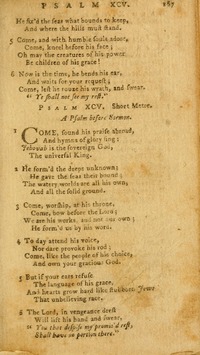 PSALM XCV. 267
He fix'd the seas what bounds to keep,
And where the hills must stand.
5 Come, and with humble souls adore,
Come, kneel before his face;
Oh may the creatures of his power
Be children of his grace!
6 Now is the time, he bends his ear,
And waits for your request;
Come, lest he rouse his wrath, and swear
"Ye shall not see my rest."
PSALM XCV. Short Metre.
A Psalm before Sermon.
1 COME, sound his praise abroad,
And hymns of glory sing:
Jehovah is the sovereign God,
The universal King.
2 He form'd the deeps unknown;
He gave the seas their bound;
The watery worlds are all his own,
And all the solid ground.
3 Come, worship, at his throne,
Come, bow before the Lord;
We are his works, and not our own;
He form'd us by his word.
4 To day attend his voice,
Nor dare provoke his rod;
Come, like the people of his choice,
And own your gracious God.
5 But if your ears refuse
The language of his grace,
And hearts grow hard like stubborn Jews
That unbelieving race.
6 The Lord, in vengeance drest
Will lift his hand and swear,
"You that despise my promis'd rest,
Shall have no portion there."